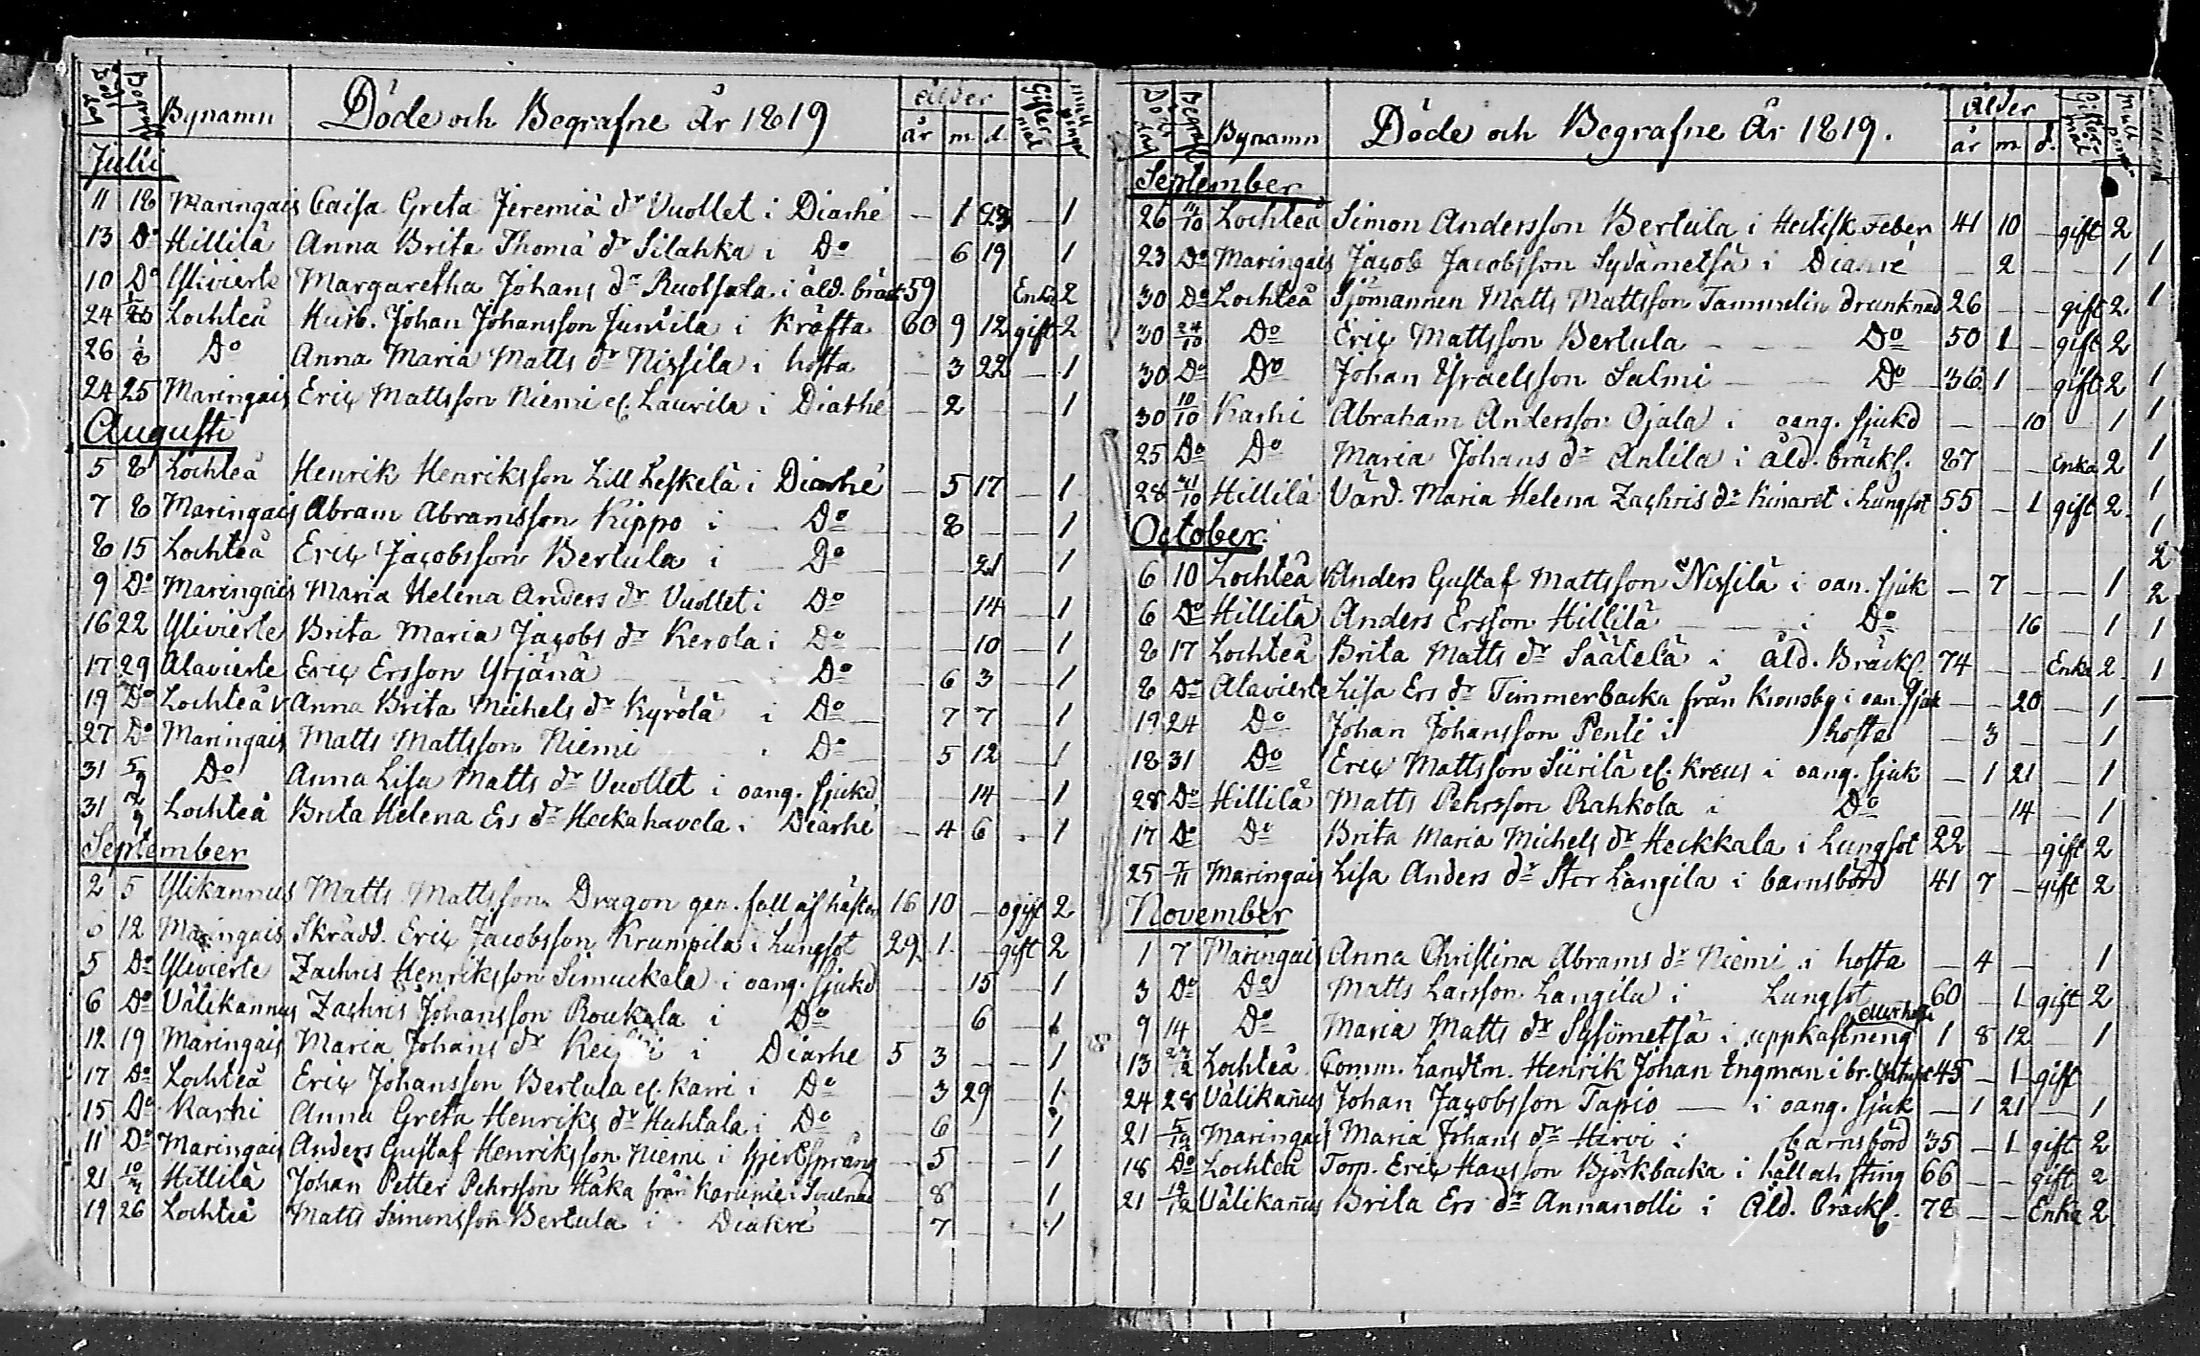 Bynamn Döde och Begrafne År 1819 ålder
år m. d.
Julii
11 18 Maringais Caisa Greta Jeremiä dr Vuollet i Diarhé — 1 23 — 1
13 Do Hillilä Anna Brita Thomä dr Silahka i Do 6 19 1
10 Do Ylivierle Margaretha Johans dr Ruotsala i åld. bräck 59 Enka 2
24 Lochteå Husb. Johan Johansson Junttila i kräfta 60 9 12 gift 2
26 1/8 Do Anna Maria Matts dr Nissila i hosta — 3 22 — 1
24 25 Maringais Eriç Mattsson Niemi el. Laurila i Diarhé — 2 1
Augusti
5 8 Lochteå Henrik Henriksson Lill Leskelä i Diarhé — 5 17 — 1
7 8 Maringais Abram Abramsson Kippo i — Do 8 — 1
8 15 Lochteå Eriç Jacobsson Bertula i — Do 21 1
9 Do Maringais Maria Helena Anders dr Vuollet i Do 14 — 1
16 22 Ylivierle Brita Maria Jaçobs dr Kerola i Do 10 — 1
17 29 Alavierle Eriç Ersson Yrjänä Do 6 3 — 1
19 Do Lochteå V Anna Brita Michels dr Kyrölä i Do 7 7 — 1
27 Do Maringais Matts Mattsson Niemi i Do 5 12 — 1
31 5/9 Do Anna Lisa Matts dr Vuollet i oang. sjukd 14 — 1
31 Lochteå Brita Helena Ers dr Heckahavela i Diarhé — 4 6 . 1
September
2 5 Ylikannus Matts Mattsson Dragon gen. fall af hästen 16 10 — ogift 2
6 12 Maringais Skrädd. Eriç Jacobsson Krumpila i Lungsot 29 1 — gift 2
5 Do Ylivierle Zachris Henriksson Simuckala i oang. sjukd 15 — 1
6 Do Välikannus Zachris Johansson Roukala i Do 6 — 1
12 19 Maringais Maria Johans dr i Diarhe 5 3 — — 1
17 Do Lochteå Eriç Johansson Bertula el. Karri i Do 3 29 1
15 Do Karhi Anna Greta Henriks dr Huhtala i Do 6 1
11 Do Maringais Anders Gustaf Henriksson Niemi i 5 1
21 Hillilä Johan Petter Pehrsson Håka från 8 1
19 26 Lochteå Matts Simonsson Bertula i Diahré 7 1
Bynamn Döde och Begrafne År 1819. ålder
år m d.
September
26 Lochteå Simon Andersson Bertula i Hectisk Feber 41 10 — gift 2
23 Do Maringais Jaçob Jacobsson Sydämetsä i Diahré — 2 — — 1
30 Do Lochteå Sjömannen Matts Mattsson Tammelin drunknad 26 — — gift 2
30 24/10 Do Eriç Mattsson Bertula — — Do 50 1 — gift 2
30 Do Do Johan Ysraelsson Salmi — — Do 36 1 — gift 2
30 10/10 Karhi Abraham Andersson Ojala i oang. sjukd — — 10 1
25 Do Do Maria Johans dr Anlila i åld. bräckl. 87 — — Enka 2
28 Hillilä Värd. Maria Helena Zachris dr Kinaret i Lungsot 55 — 1 gift 2
October.
6 10 Lochteå Anders Gustaf Mattsson Nissilä i oan. sjuk — 7 — — 1
6 Do Hillilä Anders Ersson Hillilä i Do 16 — 1
8 17 Lochteå Brita Matts dr Säätelä i åld. Bräckl. 74 — — Enka 2
8 Do Alavierle Lisa Ers dr Timmerbacka från Kronoby i oan. sjuk — — 20 — 1
19 24 Do Johan Johansson Penti i hosta — 3 — — 1
18 31 Do Eriç Mattsson Siirilä el. Kreus i oang. sjuk — 1 21 — 1
28 Do Hillilä Matts Pehrsson Rahkola i Do 14 — 1
17 Do Do Brita Maria Michels dr Heckkala i Lungsot 22 — — gift 2
25 7/11 Maringais Lisa Anders dr Stor Långila i barnsbörd 41 7 — gift 2
November
1 7 Maringais Anna Christina Abrams dr Niemi i hosta — 4 — 1
3 Do Do Matts Larsson Langila i Lungsot 60 — 1 gift 2
9 14 Do Maria Matts dr i uppkastning 1 8 12 — 1
13 Lochteå Comm. Landtm. Henrik Johan Engman i br. 45 — 1 gift
24 28 Välikañus Johan Jaçobsson Tapio — i oang. sjuk — 1 21 — 1
21 5/12 Maringais Maria Johans dr Hirvi i barnsbörd 35 — 1 gift 2
18 Do Lochteå Torp. Eriç Hansson Björkbacka i håll och sting 66 — — gift 2
21 12/12 Välikañus Brita Ers dr Annanolli i Åld. bräckl. 78 — — Enka 2